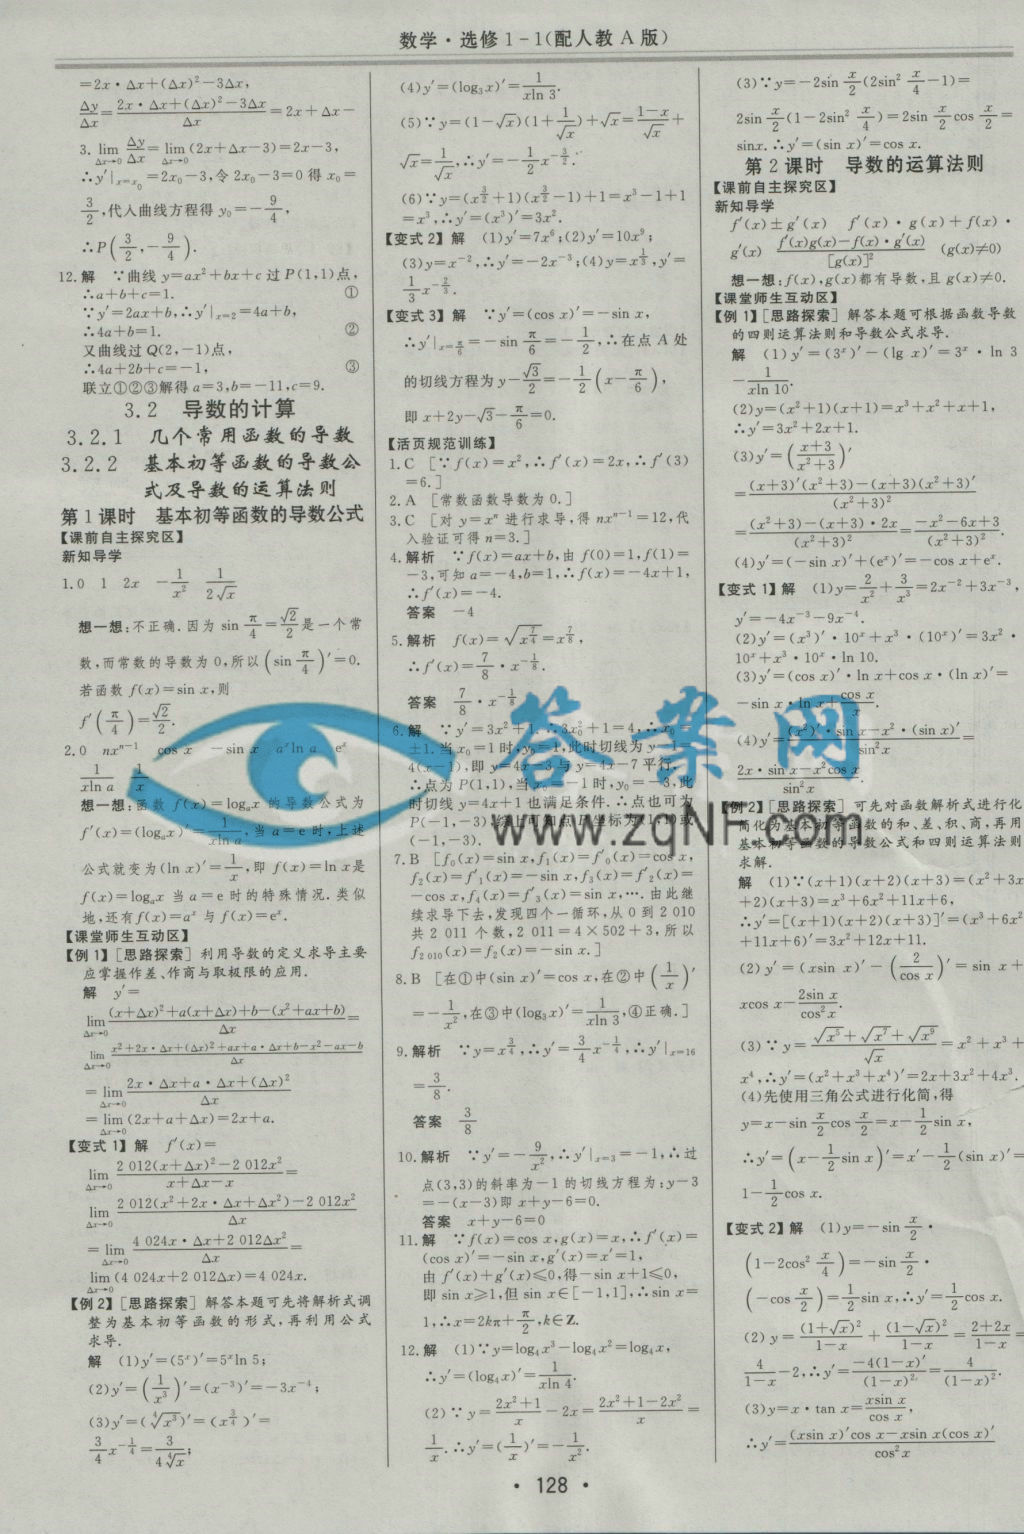 数学·选修1-1(配人教A版)
=2x·Δx+(Δx)²-3Δx,
Δy/Δx=(2x·Δx+(Δx)²-3Δx)/Δx=2x+Δx-
3.lim(Δx→0) Δy/Δx=lim(Δx→0)(2x+Δx-3)=2x-3,
∴y′|x=x₀=2x₀-3,令2x₀-3=0得x₀=
3/2,代入曲线方程得y₀=-9/4,
∴P(3/2,-9/4).
12.解 ∵曲线y=ax²+bx+c过P(1,1)点,
∴a+b+c=1. ①
∵y′=2ax+b,∴y′|x=2=4a+b,
∴4a+b=1. ②
又曲线过Q(2,-1)点,
∴4a+2b+c=-1, ③
联立①②③解得a=3,b=-11,c=9.
3.2 导数的计算
3.2.1 几个常用函数的导数
3.2.2 基本初等函数的导数公
式及导数的运算法则
第1课时 基本初等函数的导数公式
【课前自主探究区】
新知导学
1.0 1 2x -1/x² 1/(2√x)
想一想:不正确.因为sin π/4=√2/2是一个常
数,而常数的导数为0,所以(sin π/4)′=0.
若函数f(x)=sin x,则
f′(π/4)=√2/2.
2.0 nxⁿ⁻¹ cos x -sin x aˣln a eˣ
1/(xln a) 1/x
想一想:函数f(x)=logₐx的导数公式为
f′(x)=(logₐx)′=1/(xln a),当a=e时,上述
公式就变为(ln x)′=1/x,即f(x)=ln x是
f(x)=logₐx当a=e时的特殊情况.类似
地,还有f(x)=aˣ与f(x)=eˣ.
【课堂师生互动区】
【例1】[思路探索] 利用导数的定义求导主要
应掌握作差、作商与取极限的应用.
解 y′=
lim(Δx→0) ((x+Δx)²+a(x+Δx)+b-(x²+ax+b))/Δx=
lim(Δx→0) (x²+2x·Δx+(Δx)²+ax+a·Δx+b-x²-ax-b)/Δx
=lim(Δx→0) (2x·Δx+a·Δx+(Δx)²)/Δx
=lim(Δx→0)(2x+a+Δx)=2x+a.
【变式1】解 f′(x)=
lim(Δx→0) (2 012(x+Δx)²-2 012x²)/(x+Δx-x)=
lim(Δx→0) (2 012(x²+2x·Δx+Δx²)-2 012x²)/Δx
=lim(Δx→0) (4 024x·Δx+2 012Δx²)/Δx=
lim(Δx→0)(4 024x+2 012Δx)=4 024x.
【例2】[思路探索] 解答本题可先将解析式调
整为基本初等函数的形式,再利用公式
求导.
解 (1)y′=(5ˣ)′=5ˣln 5;
(2)y′=(1/x³)′=(x⁻³)′=-3x⁻⁴;
(3)y′=(⁴√x³)′=(x^(3/4))′=
3/4 x^(-1/4)=3/(4⁴√x);
(4)y′=(log₃x)′=1/(xln 3).
(5)∵y=(1-√x)(1+1/√x)+√x=(1-x)/√x+
√x=1/√x,∴y′=-1/2 x^(-3/2).
(6)∵y=(x^(3/2)+1)(x^(3/2)-1)+1=x³-1+1
=x³,∴y′=(x³)′=3x².
【变式2】解 (1)y′=7x⁶;(2)y′=10x⁹;
(3)y=x⁻²,∴y′=-2x⁻³;(4)y=x^(1/3),y′=
1/3 x^(-2/3).
【变式3】解 ∵y′=(cos x)′=-sin x,
∴y′|x=π/6=-sin π/6=-1/2,∴在点A处
的切线方程为y-√3/2=-1/2(x-π/6),
即x+2y-√3-π/6=0.
【活页规范训练】
1.C [∵f(x)=x²,∴f′(x)=2x,∴f′(3)
=6.]
2.A [常数函数导数为0.]
3.C [对y=xⁿ进行求导,得nxⁿ⁻¹=12,代
入验证可得n=3.]
4.解析 ∵f(x)=ax+b,由f(0)=1,f(1)=
-3,可知a=-4,b=1,∴f(x)=-4x+1,
∴f′(x)=-4.
答案 -4
5.解析 f(x)=√(x^(7/4))=x^(7/8),
∴f′(x)=7/8·x^(-1/8).
答案 7/8·x^(-1/8)
6.解 ∵y′=3x²+1.∴3x₀²+1=4,∴x₀=
±1.当x₀=1时,y₀=1,此时切线为y-1=
4(x-1),即y=4x-3与y=4x-7平行.
∴点为P(1,1),当x₀=-1时,y₀=-3,此
时切线y=4x+1也满足条件.∴点也可为
P(-1,-3),综上可知点P坐标为(1,1)或
(-1,-3).
7.B [f₀(x)=sin x,f₁(x)=f′₀(x)=cos x,
f₂(x)=f′₁(x)=-sin x,f₃(x)=f′₂(x)=
-cos x,f₄(x)=f′₃(x)=sin x,….由此继
续求导下去,发现四个一循环,从0到2 010
共2 011个数,2 011=4×502+3,所以
f₂ ₀₁₀(x)=f₂(x)=-sin x.]
8.B [在①中(sin x)′=cos x,在②中(1/x)′
=-1/x²,在③中(log₃x)′=1/(xln 3),④正确.]
9.解析 ∵y=x^(3/4),∴y′=3/4 x^(-1/4),∴y′|x=16
=3/8.
答案 3/8
10.解析 ∵y′=-9/x²,∴y′|x=3=-1,∴过
点(3,3)的斜率为-1的切线方程为:y-3
=-(x-3)即x+y-6=0.
答案 x+y-6=0
11.解 ∵f(x)=cos x,g(x)=x,∴f′(x)=
(cos x)′=-sin x,g′(x)=x′=1,
由f′(x)+g′(x)≤0,得-sin x+1≤0,
即sin x≥1,但sin x∈[-1,1],∴sin x=
1,∴x=2kπ+π/2,k∈Z.
12.解 (1)∵y=log₄x³-log₄x²=log₄x,
∴y′=(log₄x)′=1/(xln 4).
(2)∵y=(2x²+1)/x-2x=(2x²+1-2x²)/x=
1/x.∴y′=(1/x)′=-1/x².
(3)∵y=-2sin x/2(2sin² x/4-1)=
2sin x/2(1-2sin² x/4)=2sin x/2 cos x/2=
sinx.∴y′=(sin x)′=cos x.
第2课时 导数的运算法则
【课前自主探究区】
新知导学
f′(x)±g′(x) f′(x)·g(x)+f(x)·
g′(x) (f′(x)g(x)-f(x)·g′(x))/[g(x)]² (g(x)≠0)
想一想:f(x),g(x)都有导数,且g(x)≠0.
【课堂师生互动区】
【例1】[思路探索] 解答本题可根据函数导数
的四则运算法则和导数公式求导.
解 (1)y′=(3ˣ)′-(lg x)′=3ˣ·ln 3
-1/(xln 10).
(2)y=(x²+1)(x+1)=x³+x²+x+1,
∴y′=3x²+2x+1.
(3)y′=((x+3)/(x²+3))′
=((x+3)′(x²+3)-(x+3)(x²+3)′)/(x²+3)²
=((x²+3)-(x+3)·2x)/(x²+3)²=(-x²-6x+3)/(x²+3)².
(4)y′=(-sin x)′+(eˣ)′=-cos x+eˣ.
【变式1】解 (1)y=2/x²+3/x³=2x⁻²+3x⁻³,
y′=-4x⁻³-9x⁻⁴.
(2)y′=(x³)′·10ˣ+x³·(10ˣ)′=3x²·
10ˣ+x³·10ˣ·ln 10.
(3)y′=(cos x)′·ln x+cos x·(ln x)′=
-sin x·ln x+cos x/x.
(4)y′=((x²)′·sin x-x²·(sin x)′)/sin²x=
(2x·sin x-x²cos x)/sin²x.
【例2】[思路探索] 可先对函数解析式进行化
简化为基本初等函数的和、差、积、商,再用
基本初等函数的导数公式和四则运算法则
求解.
解 (1)∵(x+1)(x+2)(x+3)=(x²+3x
+2)(x+3)=x³+6x²+11x+6,
∴y′=[(x+1)(x+2)(x+3)]′=(x³+6x²
+11x+6)′=3x²+12x+11.
(2)y′=(xsin x)′-(2/cos x)′=sin x+
xcos x-2sin x/cos²x.
(3)∵y=(√x⁵+√x⁷+√x⁹)/√x=x²+x³+
x⁴,∴y′=(x²+x³+x⁴)′=2x+3x²+4x³.
(4)先使用三角公式进行化简,得
y=x-sin x/2 cos x/2=x-1/2 sin x,
∴y′=(x-1/2 sin x)′=x′-1/2(sin x)′=
1-1/2 cos x.
【变式2】解 (1)y=-sin x/2·
(1-2cos² x/4)=-sin x/2·
(-cos x/2)=1/2 sin x,∴y′=1/2 cos x.
(2)y=(1+√x)²/(1-x)+(1-√x)²/(1-x)=(2+2x)/(1-x)=
4/(1-x)-2,∴y′=-4(1-x)′/(1-x)²=4/(1-x)².
(3)y=x·tan x=xsin x/cos x,
∴y′=((xsin x)′cos x-xsin x(cos x)′)/cos²x
·128·
答案网
www.zqNF.com